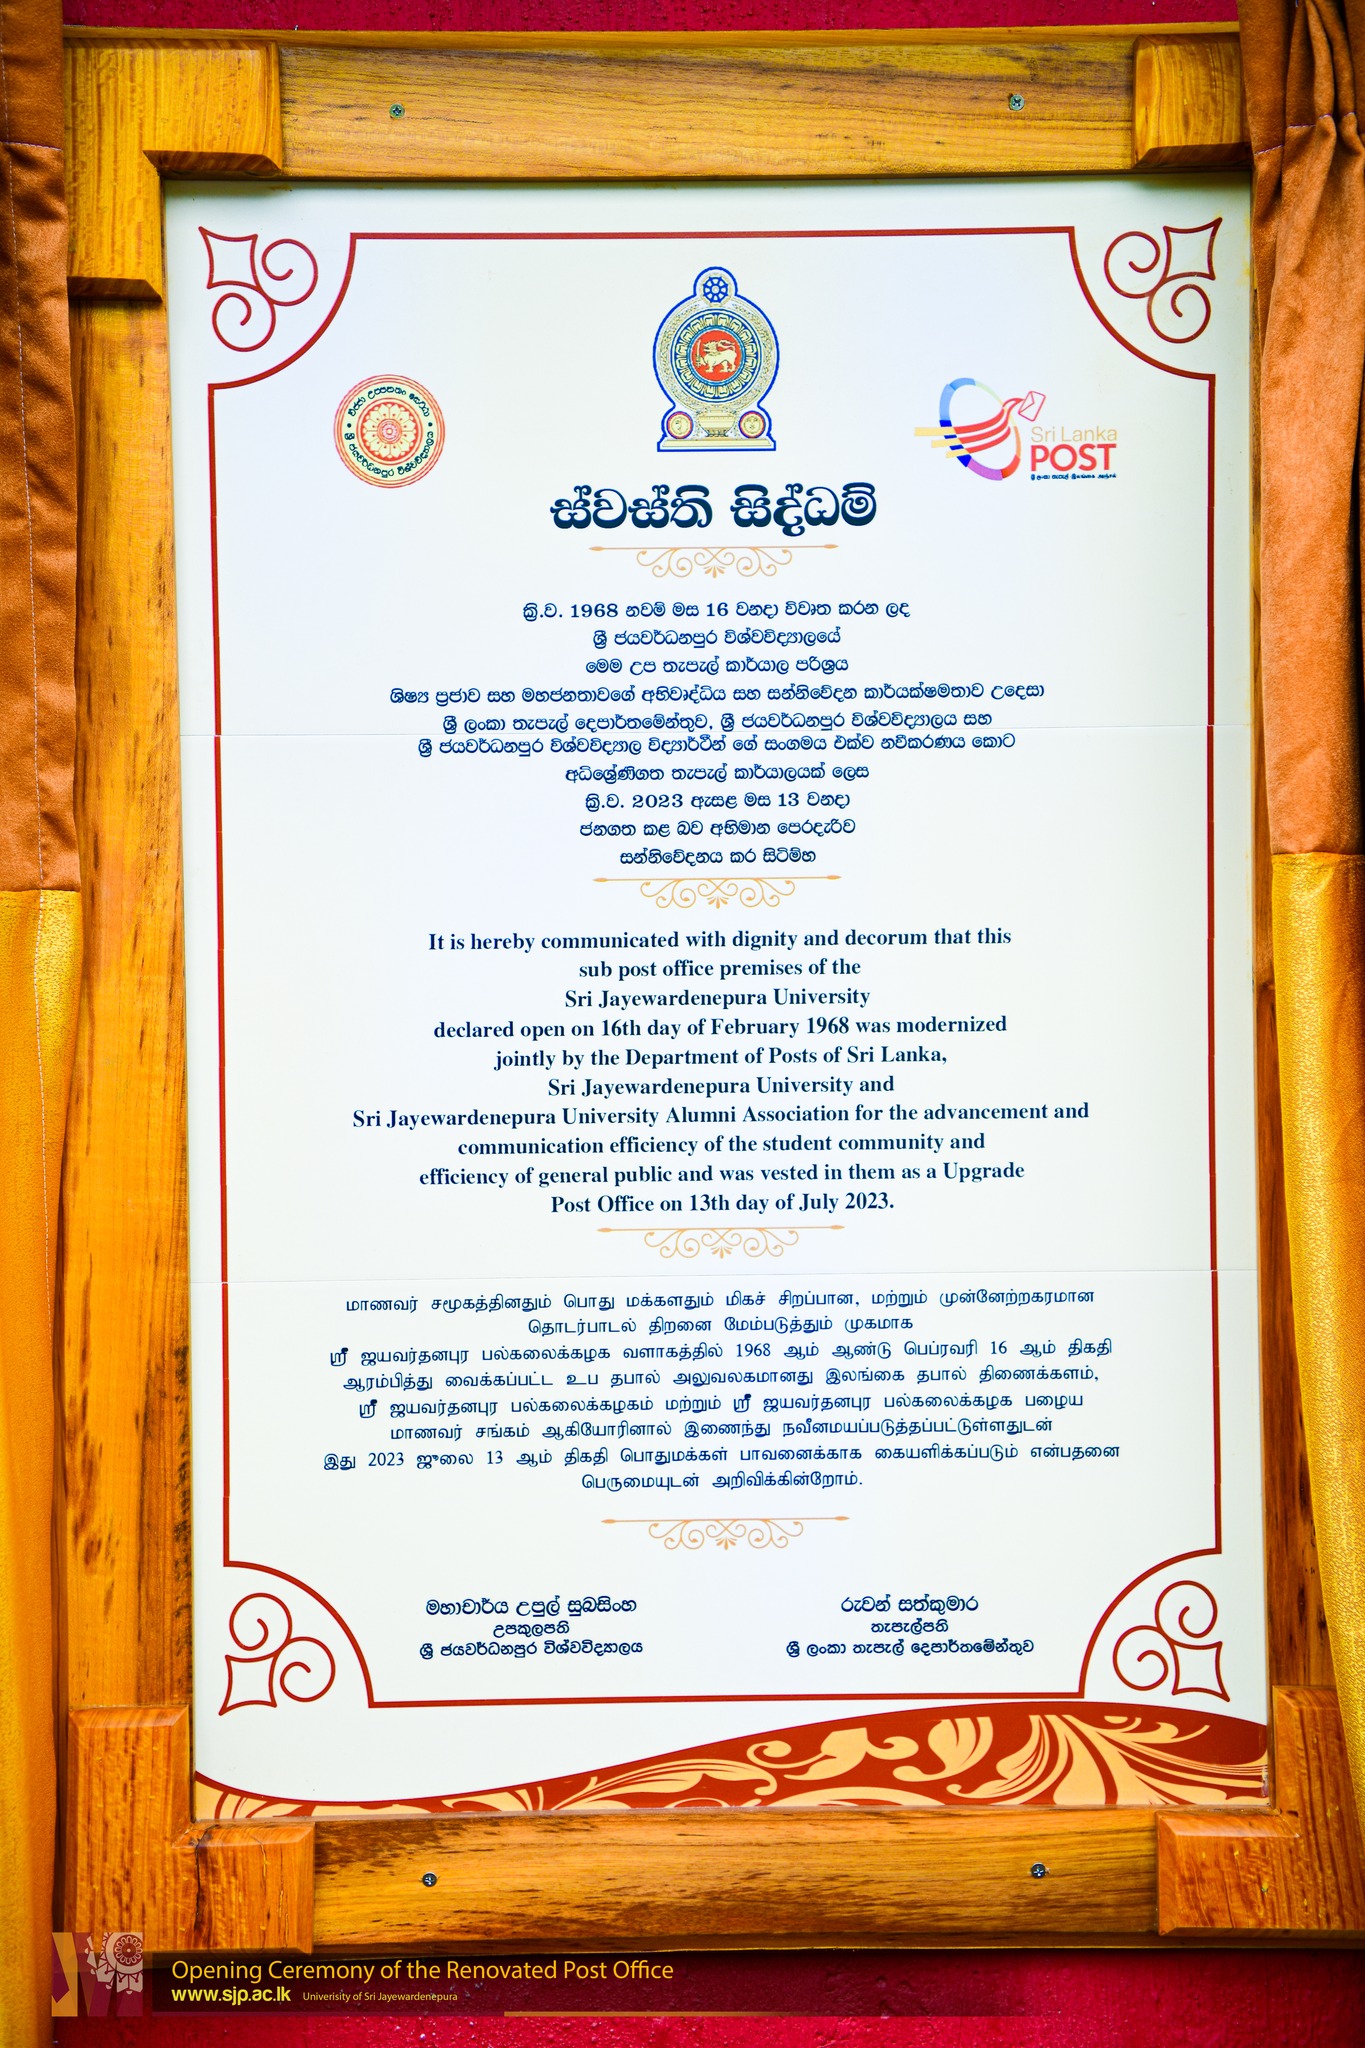 විජ්ජා උප්පතතං සෙට්ඨා
ශ්‍රී ජයවර්ධනපුර විශ්වවිද්‍යාලය
Sri Lanka
POST
ස්වස්ති සිද්ධම්
ක්‍රි.ව. 1968 නවම් මස 16 වනදා විවෘත කරන ලද
ශ්‍රී ජයවර්ධනපුර විශ්වවිද්‍යාලයේ
මෙම උප තැපැල් කාර්යාල පරිශ්‍රය
ශිෂ්‍ය ප්‍රජාව සහ මහජනතාවගේ අභිවෘද්ධිය සහ සන්නිවේදන කාර්යක්ෂමතාව උදෙසා
ශ්‍රී ලංකා තැපැල් දෙපාර්තමේන්තුව, ශ්‍රී ජයවර්ධනපුර විශ්වවිද්‍යාලය සහ
ශ්‍රී ජයවර්ධනපුර විශ්වවිද්‍යාල විද්‍යාර්ථීන් ගේ සංගමය එක්ව නවීකරණය කොට
අධිශ්‍රේණිගත තැපැල් කාර්යාලයක් ලෙස
ක්‍රි.ව. 2023 ඇසළ මස 13 වනදා
ජනගත කළ බව අභිමාන පෙරදැරිව
සන්නිවේදනය කර සිටිම්හ
It is hereby communicated with dignity and decorum that this
sub post office premises of the
Sri Jayewardenepura University
declared open on 16th day of February 1968 was modernized
jointly by the Department of Posts of Sri Lanka,
Sri Jayewardenepura University and
Sri Jayewardenepura University Alumni Association for the advancement and
communication efficiency of the student community and
efficiency of general public and was vested in them as a Upgrade
Post Office on 13th day of July 2023.
மாணவர் சமூகத்தினதும் பொது மக்களதும் மிகச் சிறப்பான, மற்றும் முன்னேற்றகரமான
தொடர்பாடல் திறனை மேம்படுத்தும் முகமாக
ஸ்ரீ ஜயவர்தனபுர பல்கலைக்கழக வளாகத்தில் 1968 ஆம் ஆண்டு பெப்ரவரி 16 ஆம் திகதி
ஆரம்பித்து வைக்கப்பட்ட உப தபால் அலுவலகமானது இலங்கை தபால் திணைக்களம்,
ஸ்ரீ ஜயவர்தனபுர பல்கலைக்கழகம் மற்றும் ஸ்ரீ ஜயவர்தனபுர பல்கலைக்கழக பழைய
மாணவர் சங்கம் ஆகியோரினால் இணைந்து நவீனமயப்படுத்தப்பட்டுள்ளதுடன்
இது 2023 ஜுலை 13 ஆம் திகதி பொதுமக்கள் பாவனைக்காக கையளிக்கப்படும் என்பதனை
பெருமையுடன் அறிவிக்கின்றோம்.
මහාචාර්ය උපුල් සුබසිංහ
උපකුලපති
ශ්‍රී ජයවර්ධනපුර විශ්වවිද්‍යාලය
රුවන් සත්කුමාර
තැපැල්පති
ශ්‍රී ලංකා තැපැල් දෙපාර්තමේන්තුව
Opening Ceremony of the Renovated Post Office
www.sjp.ac.lk Univerisity of Sri Jayewardenepura